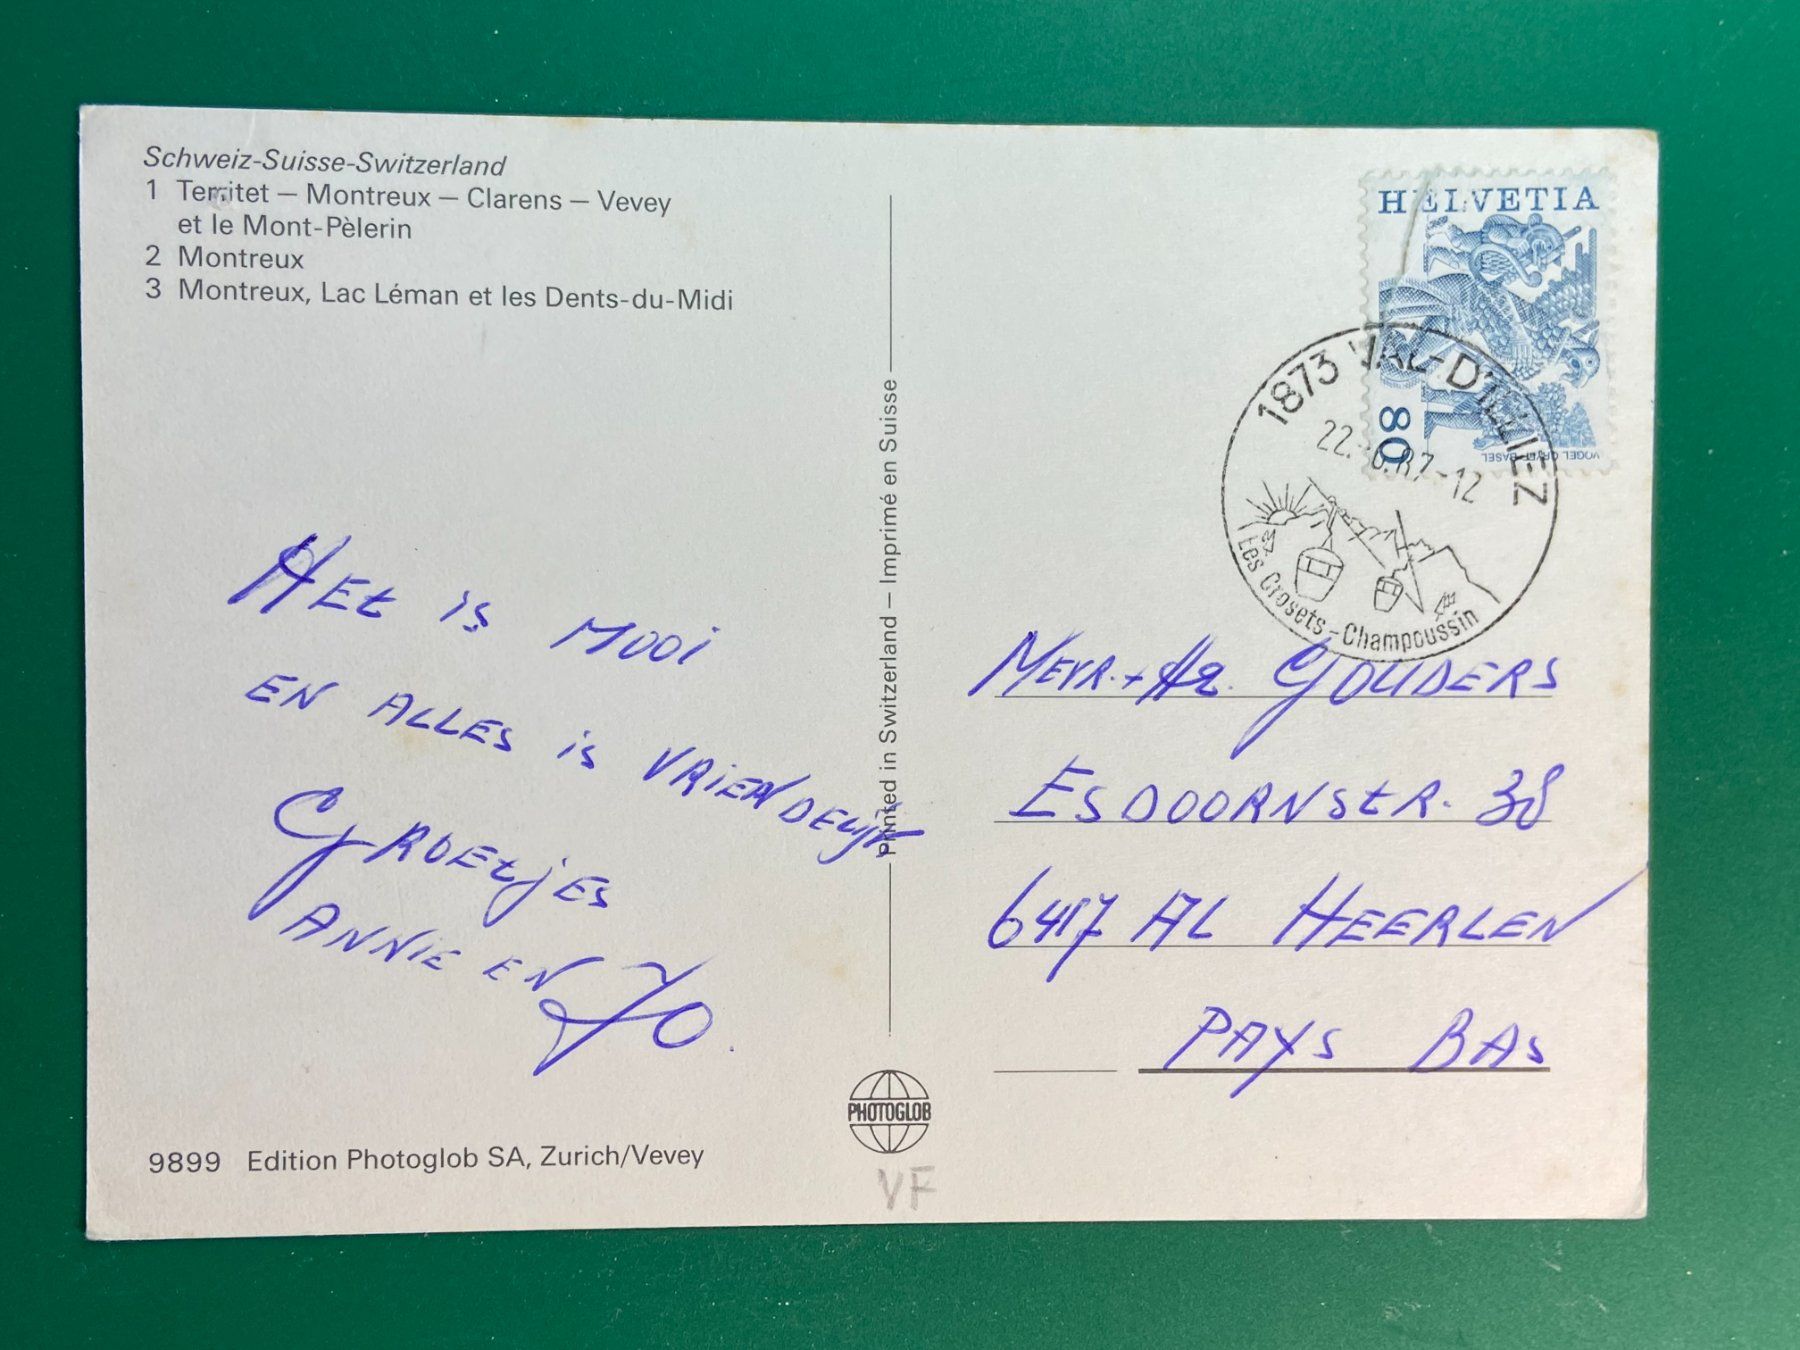 Schweiz-Suisse-Switzerland
1 Territet – Montreux – Clarens – Vevey
et le Mont-Pèlerin
2 Montreux
3 Montreux, Lac Léman et les Dents-du-Midi
HEt is MOOi
EN ALLES is VRiENDELijk
GROEtjES
ANNIE EN JO.
9899 Edition Photoglob SA, Zurich/Vevey
Printed in Switzerland – Imprimé en Suisse
PHOTOGLOB
VF
HELVETIA
80
VOGEL GRYFF BASEL
1873 VAL-D'ILLIEZ
22. .87-12
Les Crosets-Champoussin
MEVR.+ Hr. GOUDERS
ESDOORNStR. 38
6417 AL HEERLEN
PAYS BAS